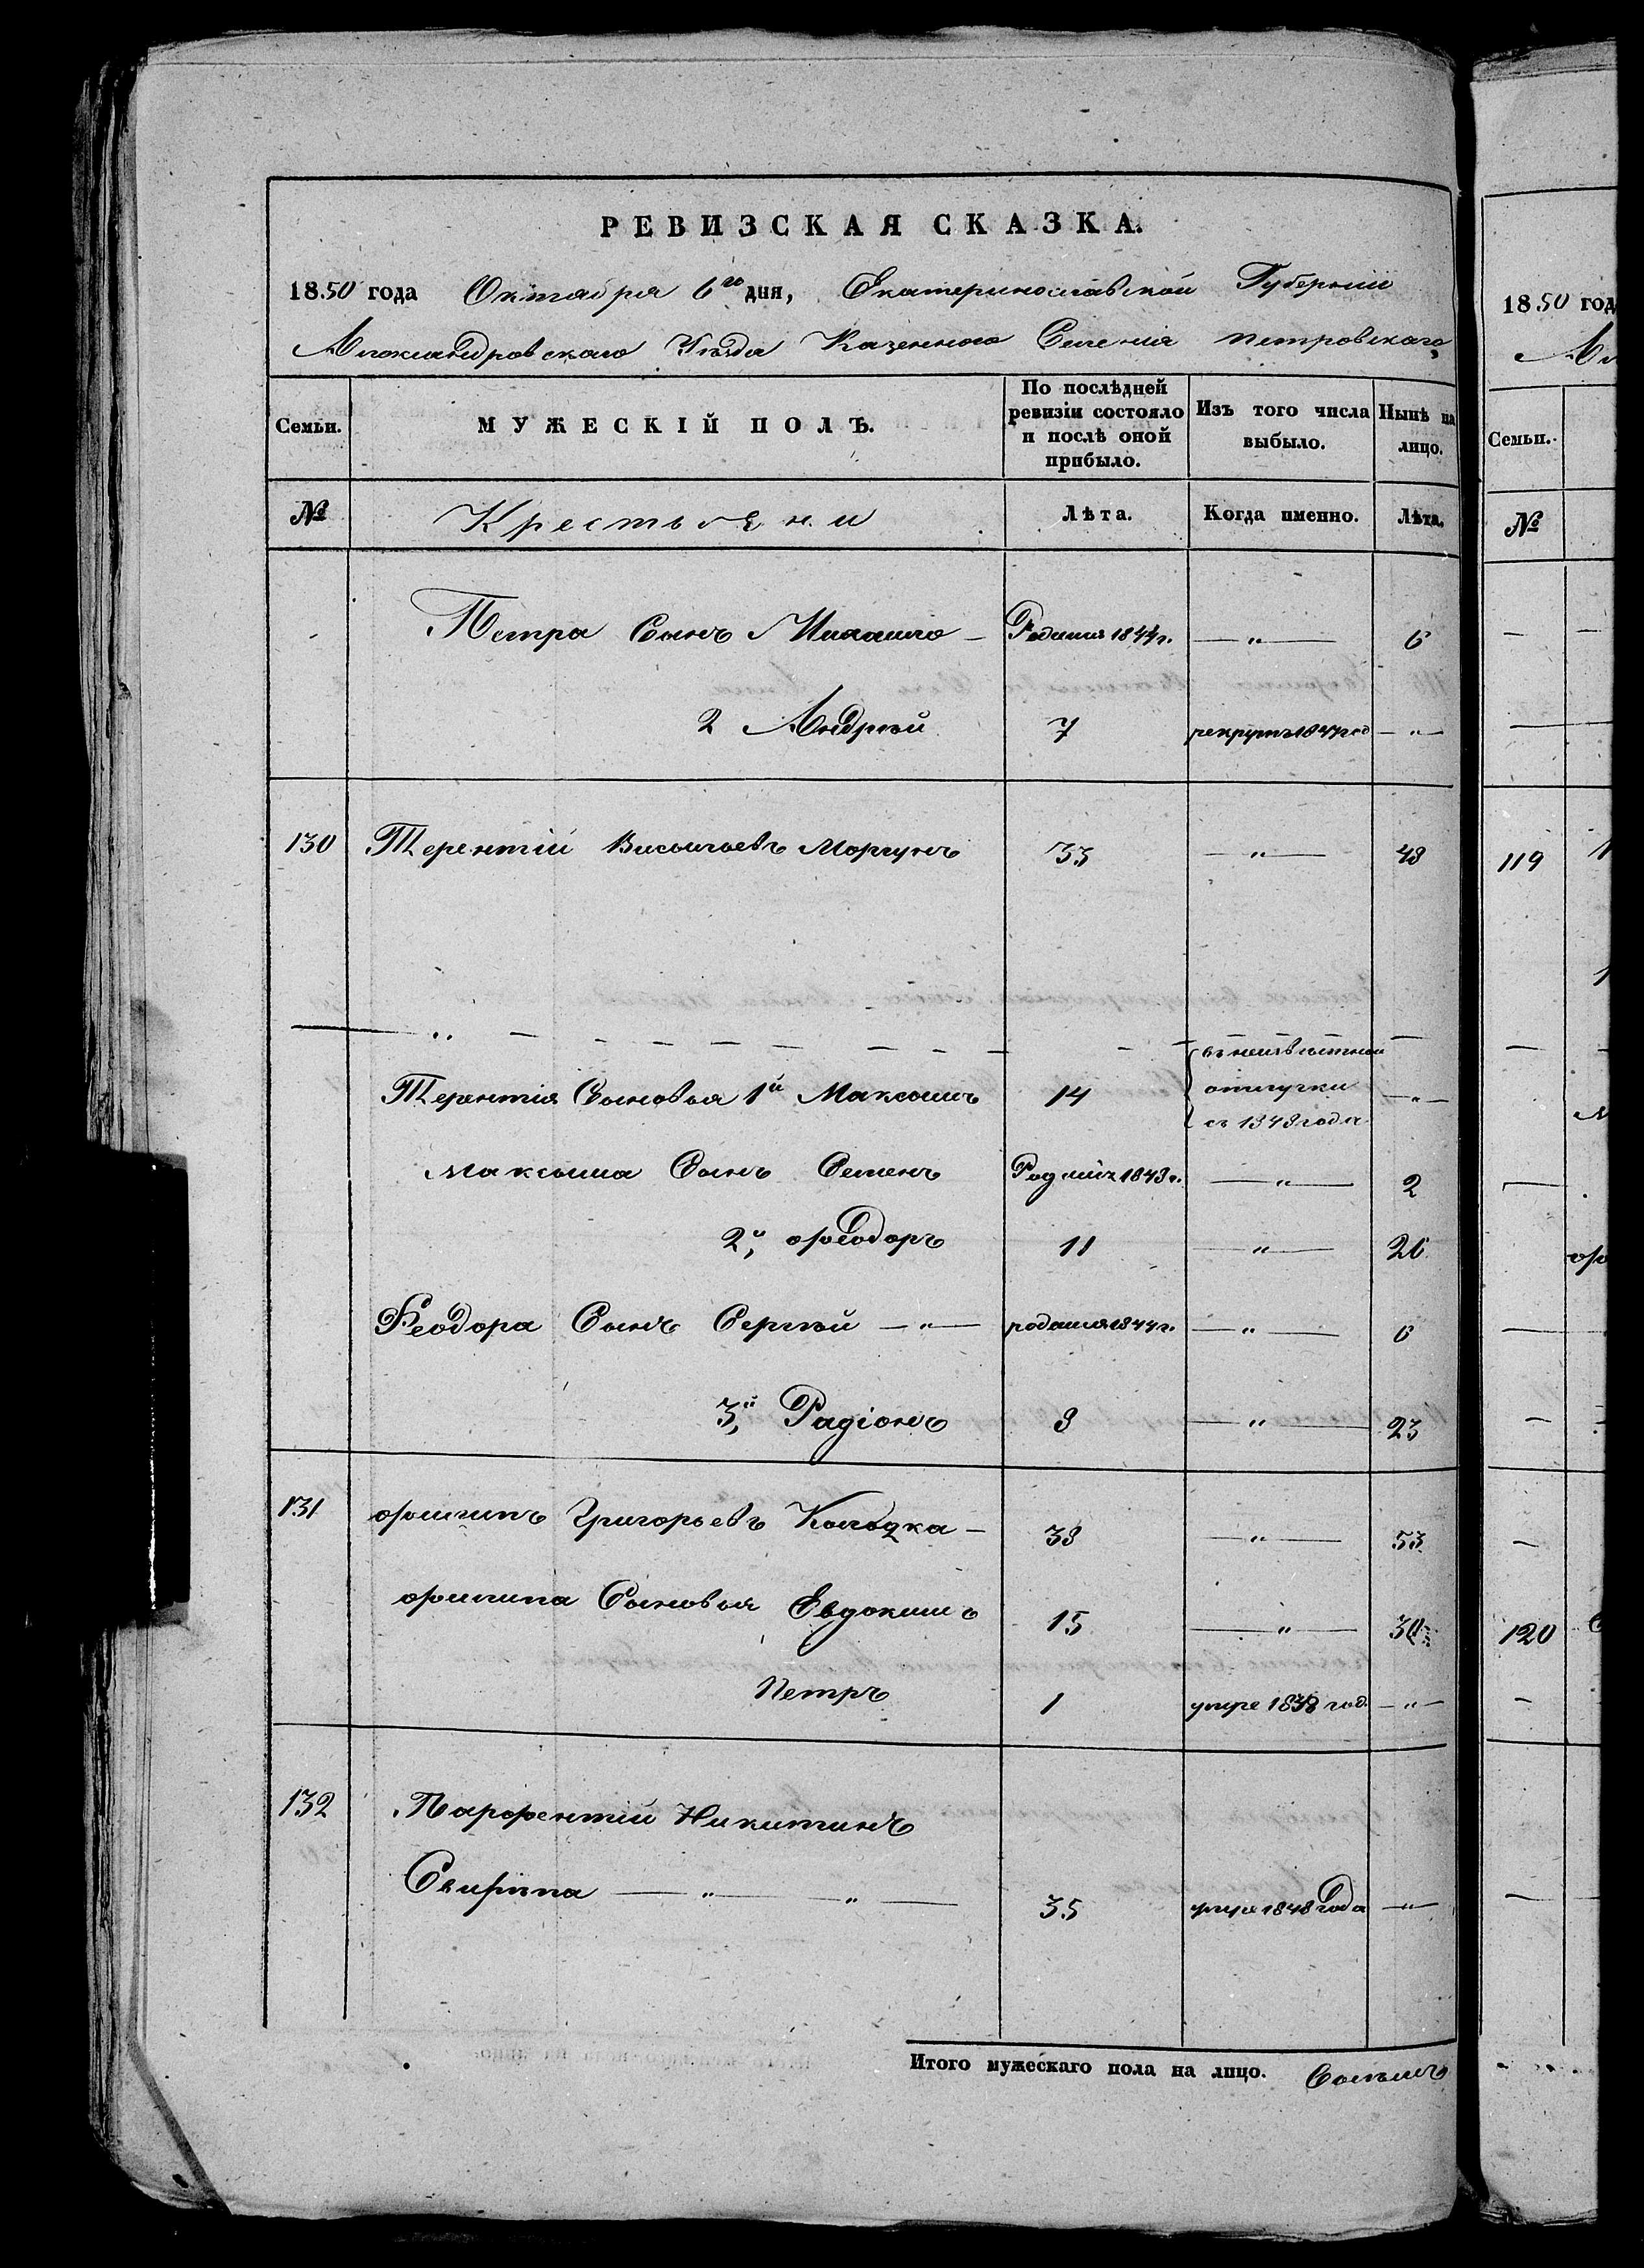 РЕВИЗСКАЯ СКАЗКА.
1850 года Октября 6го дня, Екатеринославской Губернии
Александровскаго Уезда Казенного Селения Петровскаго
Семьи. МУЖЕСКІЙ ПОЛЪ. По послѣдней ревизіи состояло и послѣ оной прибыло. Изъ того числа выбыло. Нынѣ на лицо.
№ Крестьяни Лѣта. Когда именно. Лѣта.
Петра Сынъ Михаило — Родился 1844 г. — " — 6
2 Андрей 7 рекрутъ 1847 год — " —
130 Терентій Моргунъ 33 — " — 48
Терентія Сыновья 1й Максимъ 14 въ неизвѣстной отлучки съ 1848 года — " —
Максима Сынъ Семенъ 1848 г. — " — 2
2й Ѳеодоръ 11 — " — 26
Феодора Сынъ Сергѣй — " — родился 1844 г. — " — 6
3й Радіонъ 8 — " — 23
131 Филипъ Григорьевъ Колодка — 38 — " — 53
Филипа Сыновья Евдокимъ 15 — " — 30
Петръ 1 умре 1838 год. — " —
132 Парфентій Никитинъ
Свирипа — " — " — 35 умре 1848 года — " —
Итого мужескаго пола на лицо.
1850 год
Семьи.
№
119
120